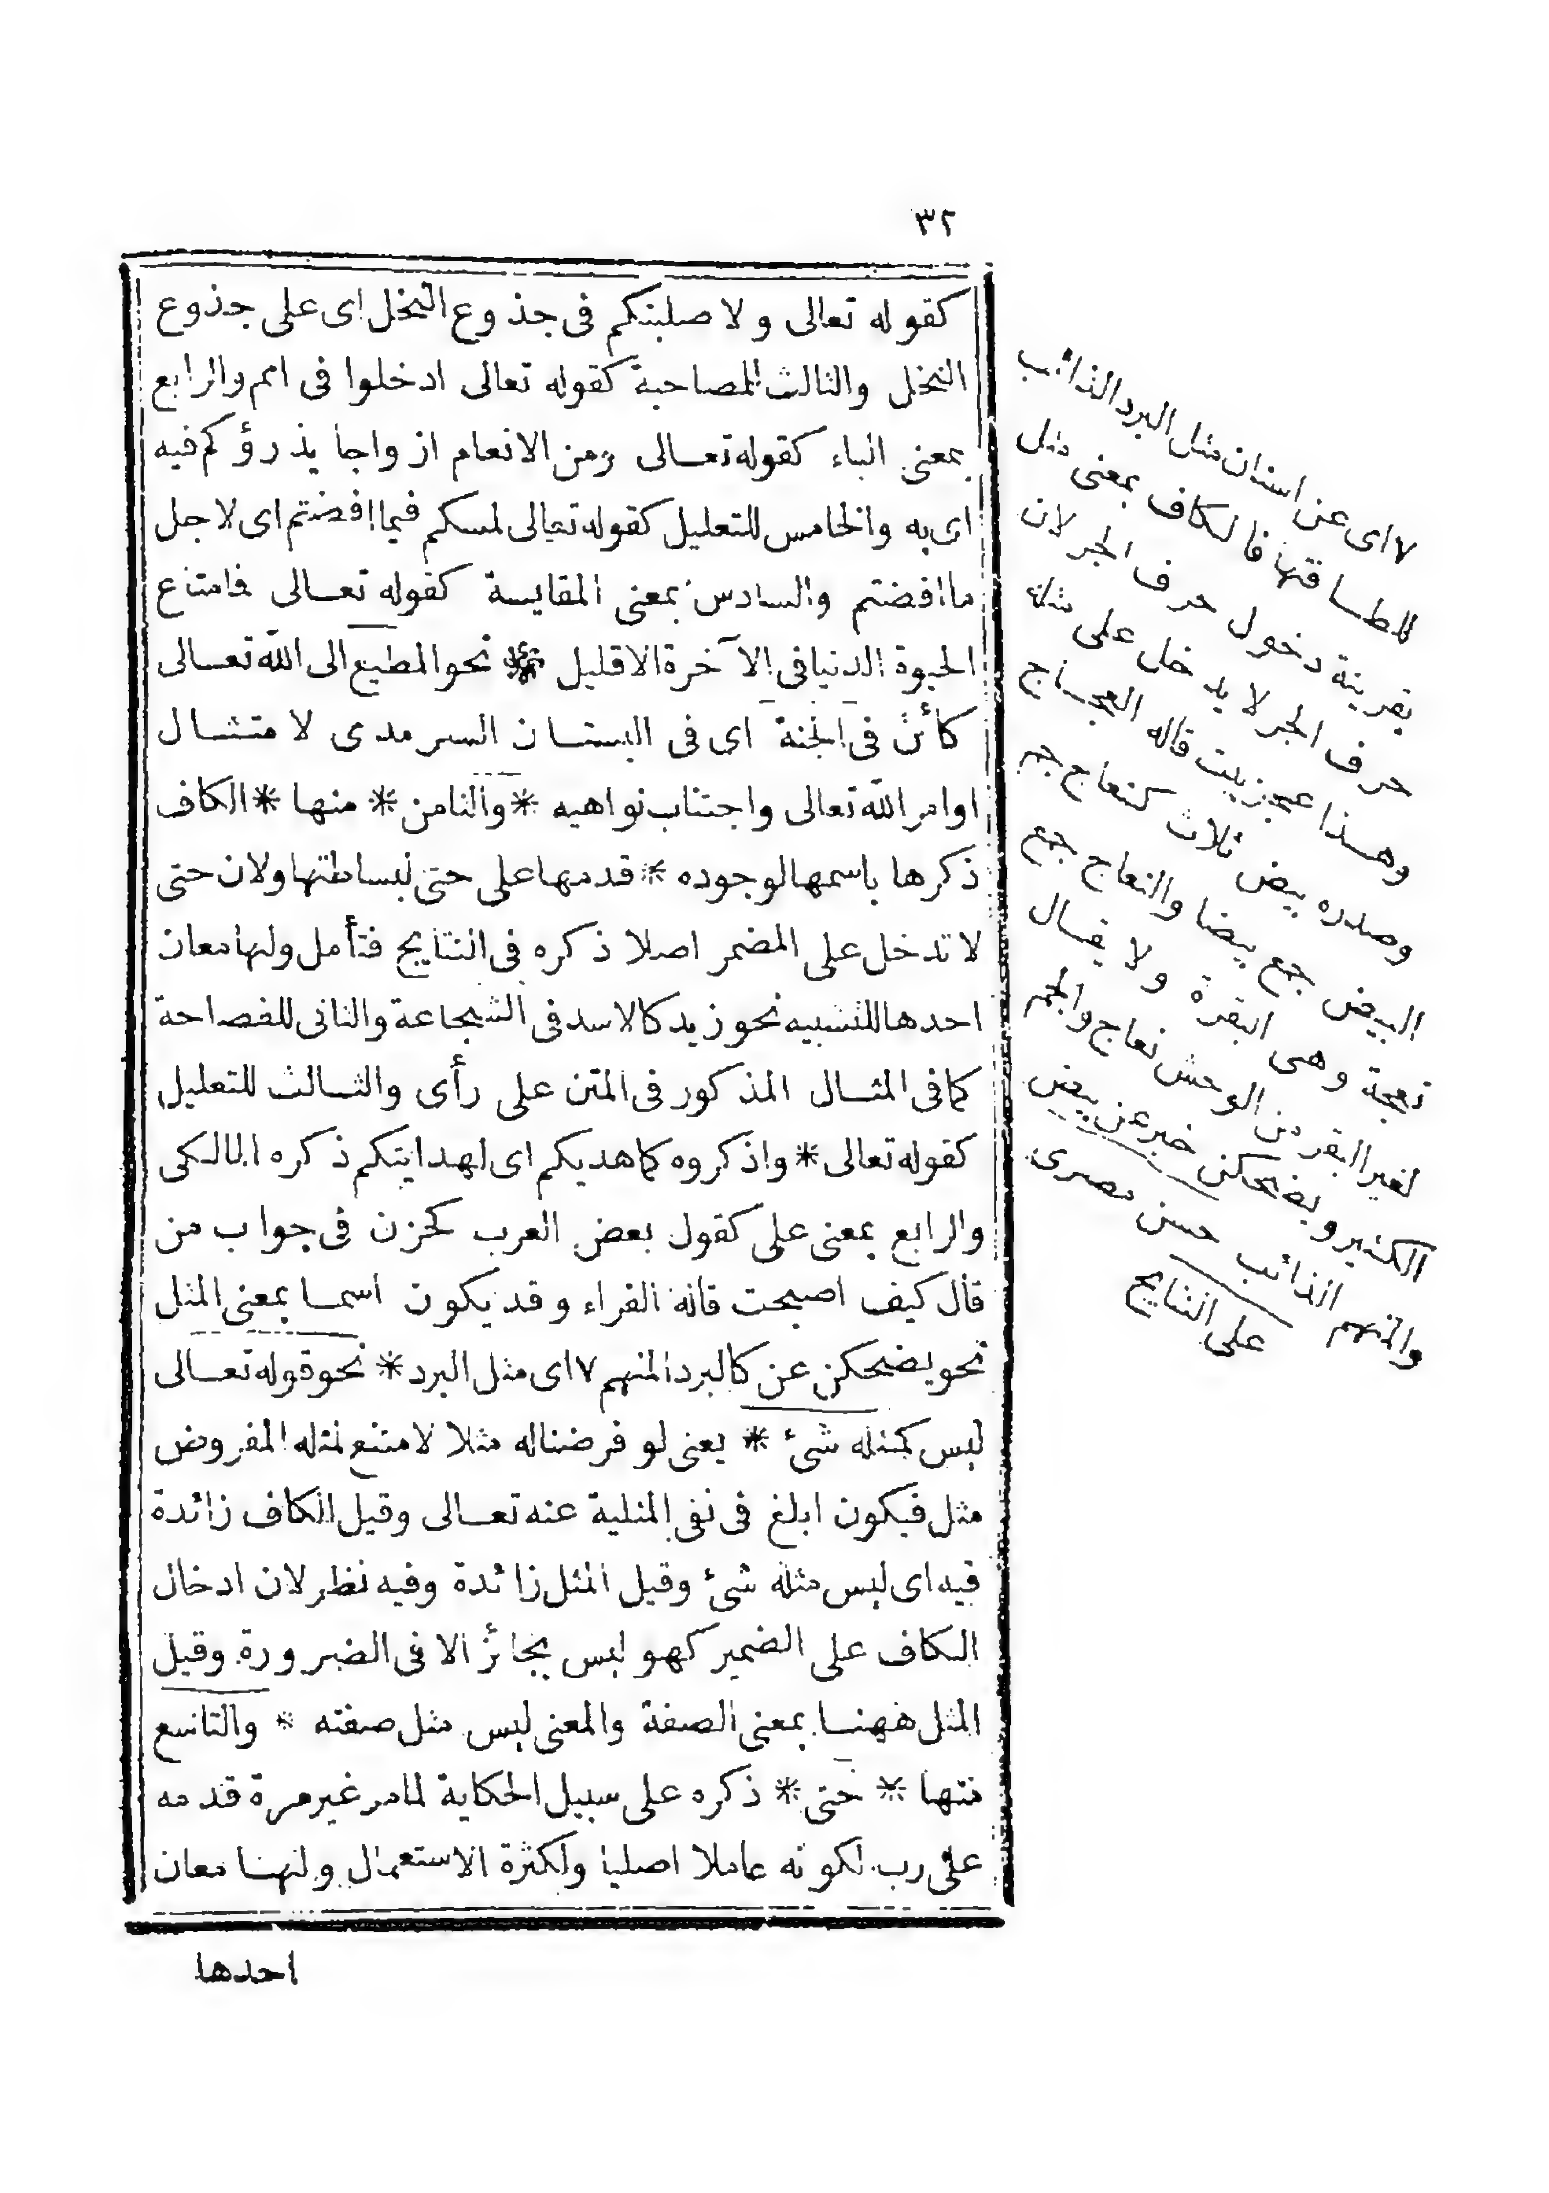 ٣٢
كقوله تعالى ولاصلبنكم فى جذوع النخل اى على جذوع
النخل والثالث المصاحبة كقوله تعالى ادخلوا فى امم والرابع
بمعنى الباء كقوله تعالى ومن الانعام ازواجا يذرؤكم فيه
اى به والخامس للتعليل كقوله تعالى لمسكم فيما افضتم اى لاجل
ما افضتم والسادس بمعنى المقايسة كقوله تعالى فامتاع
الحيوة الدنيا فى الآخرة الاقليل * نحو المطيع الى الله تعالى
كائن فى الجنة اى فى البستان السرمدى لامتثال
اوامر الله تعالى واجتناب نواهيه * والثامن * منها * الكاف
ذكرها باسمها لوجوده * قدمها على حتى لبساطتها ولان حتى
لا تدخل على المضمر اصلا ذكره فى النتايج فتأمل ولها معان
احدها للتشبيه نحو زيد كالاسد فى الشجاعة والثانى للفصاحة
كما فى المثال المذكور فى المتن على رأى والثالث للتعليل
كقوله تعالى * واذكروه كما هديكم اى لهدايتكم ذكره المالكى
والرابع بمعنى على كقول بعض العرب كخزن فى جواب من
قال كيف اصبحت قاله الفراء وقد يكون اسما بمعنى المثل
نحو يضحكن عن كالبرد المنهم ٧ اى مثل البرد * نحو قوله تعالى
ليس كمثله شئ * يعنى لو فرضناله مثلا لامتنع لمثله المفروض
مثل فيكون ابلغ فى نفى المثلية عنه تعالى وقيل الكاف زائدة
فيه اى ليس مثله شئ وقيل المثل زائدة وفيه نظر لان ادخال
الكاف على الضمير كهو ليس بجائز الا فى الضرورة وقيل
المثل ههنا بمعنى الصفة والمعنى ليس مثل صفته * والتاسع
منها * حتى * ذكره على سبيل الحكاية لما مر غير مرة قدمه
على رب لكونه عاملا اصليا ولكثرة الاستعمال ولها معان
احدها
٧ اى عن اسنان مثل البرد الذائب
للطافتها فالكاف بمعنى مثل
بقرينة دخول حرف الجر لان
حرف الجر لا يدخل على مثله
وهذا عجز بيت قاله العجاج
وصدره بيض ثلاث كنعاج جم
البيض جمع بيضا والنعاج جمع
نعجة وهى البقرة ولا يقال
لغير البقر من الوحش نعاج والجم
الكثير ويضحكن خبر عن بيض
والمنهم الذائب حسن مصرى
على النتايج